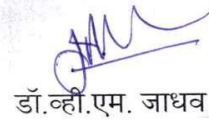 डॉ.व्ही.एम. जाधव